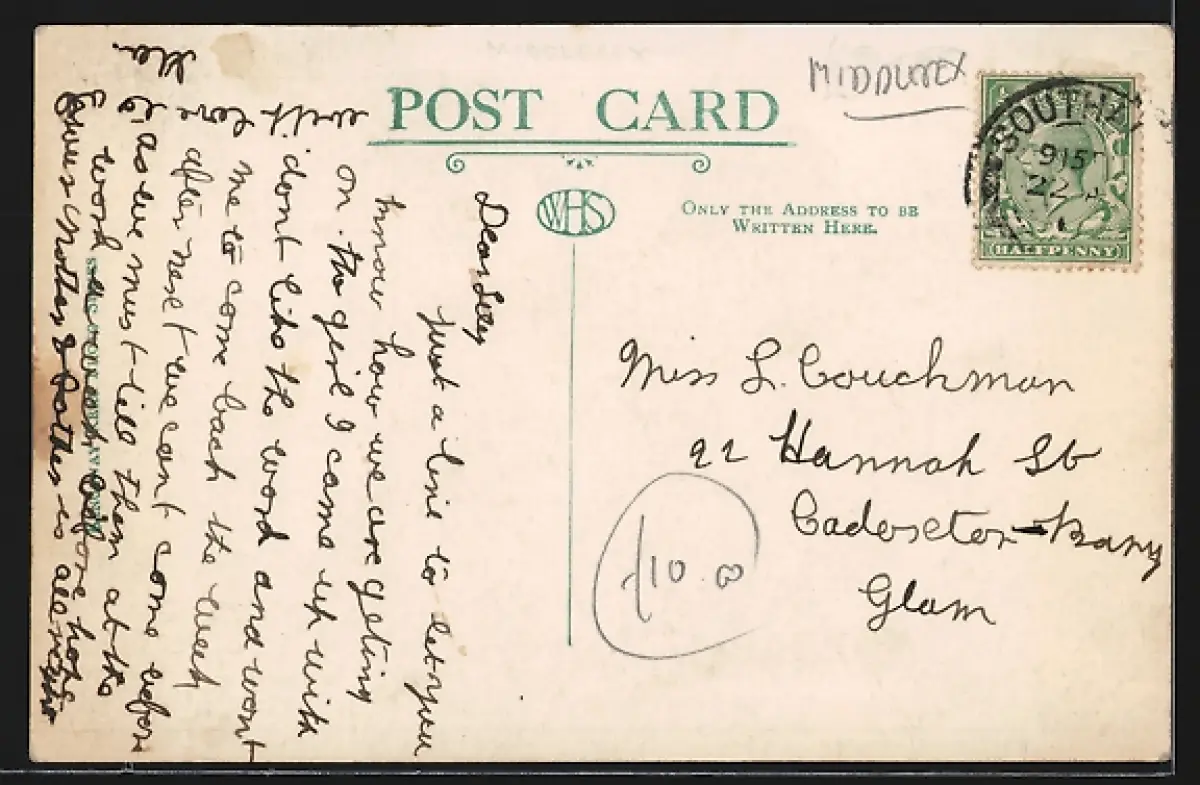 MIDDLESEX
POST CARD
WHS
ONLY THE ADDRESS TO BE
WRITTEN HERE.
SOUTH
915
22
HALFPENNY
Miss L. Couchman
22 Hannah St
Cadoxton-Barry
Glam
£10.00
Dear Lily
Just a line to let you
know how we are geting
on. the girl I came up with
dont like the word and want
me to come back the week
after next we cant come before
as we must tell them at the
work a week before hope
Mother & Father is all right